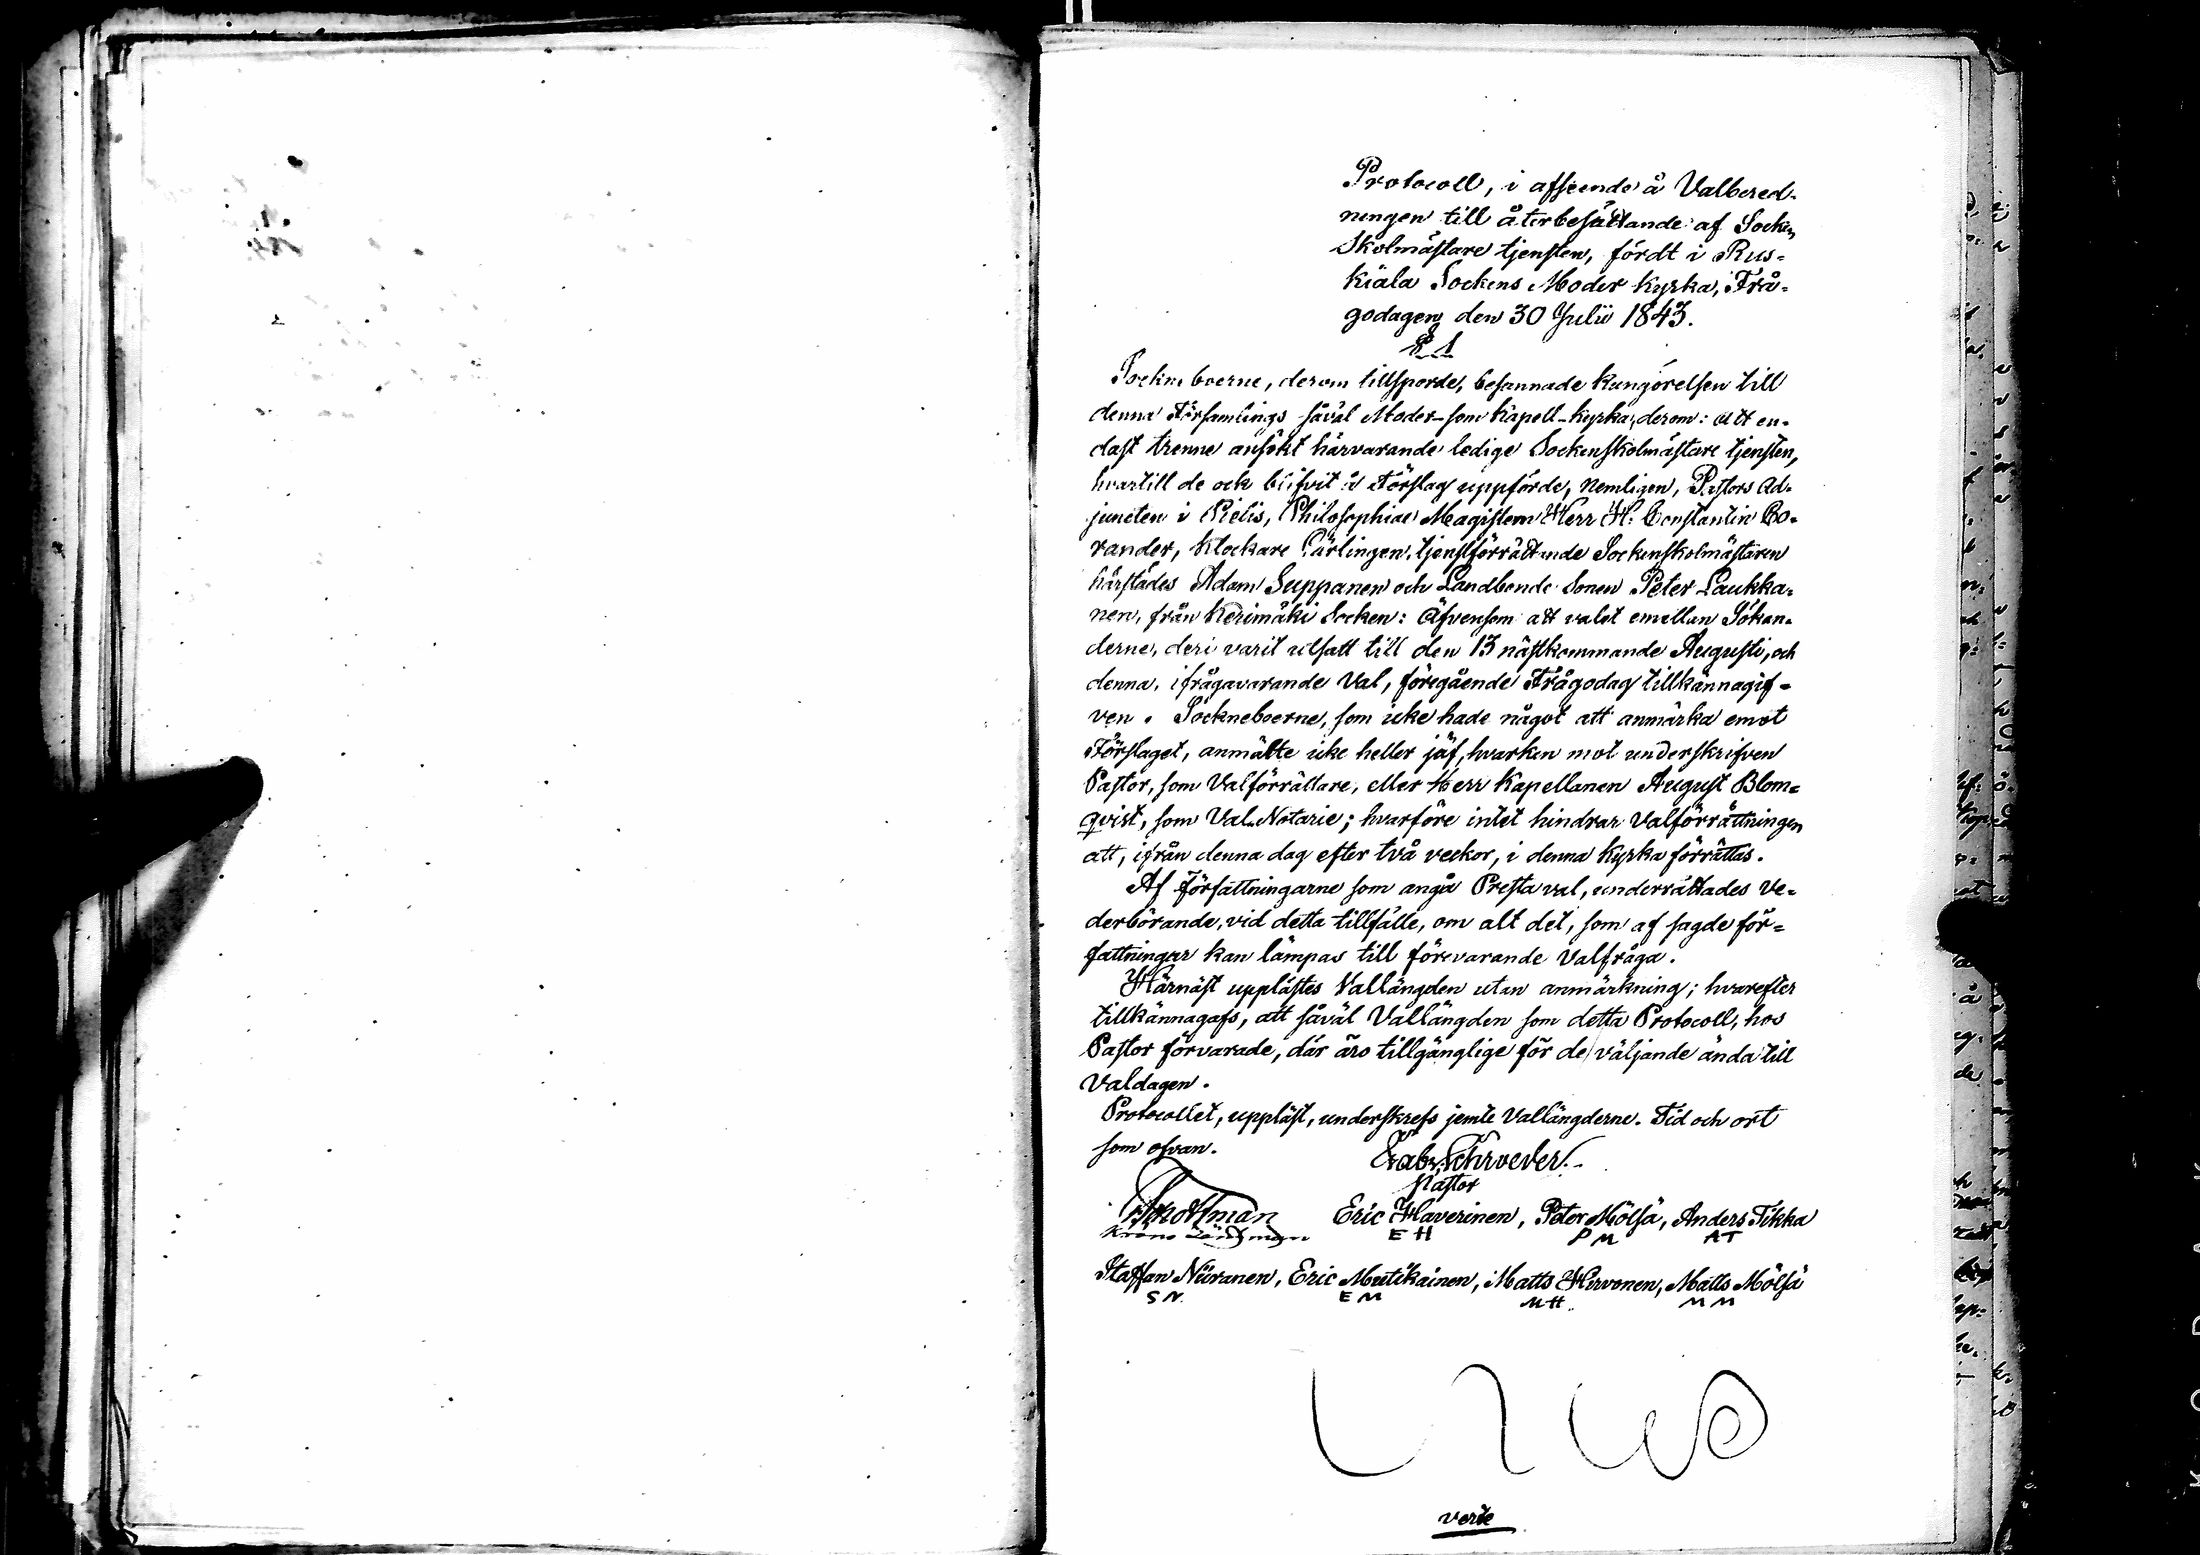 Protocoll, i afseende å Valbered-
ningen till återbesättande af Socken
Skolmästare tjensten, fördt i Rus-
kiala Sockens Moder kyrka, Frå-
godagen den 30 Julii 1843.
§ 1
Sockneboerne, derom tillsporde, besannade kungörelsen till
denna Församlings såväl Moder- som Kapell-kyrka, derom: att en-
dast trenne ansökt härvarande ledige Sockenskolmästare tjensten,
hvartill de ock blifvit å Förslag uppförde, nemligen, Pastors Ad-
juncten i Pielis, Philosophiae Magistern Herr H: Constantin Bo-
rander, Klockare Lärlingen, tjenstförrättande Sockenskolmästaren
härstädes Adam Suppanen och Landbonde Sonen Peter Laukka-
nen, från Kerimäki Socken: Äfvensom att valet emellan Sökan-
derne, deri varit utsatt till den 13 nästkommande Augusti, och
denna, ifrågavarande Val, föregående Frågodag tillkännagif-
ven. Sockneboerne, som icke hade något att anmärka emot
Förslaget, anmälte icke heller jäf, hvarken mot underskrifven
Pastor, som Valförrättare, eller Herr Kapellanen August Blom-
qvist, som Val-Notarie; hvarföre intet hindrar Valförrättningen
att, ifrån denna dag efter två veckor, i denna Kyrka förrättas.
Af Författningarne som angå Prestaval, underrättades Ve-
derbörande, vid detta tillfälle, om alt det, som af sagde för-
fattningar kan lämpas till förevarande Valfråga.
Härnäst upplästes Vallängden utan anmärkning; hvarefter
tillkännagafs, att såväl Vallängden som detta Protocoll, hos
Pastor förvarade, där äro tillgänglige för de väljande ända till
Valdagen.
Protocollet, uppläst, underskrefs jemte Vallängderne. Tid och ort
som ofvan.
Zab: Schroeder.
Pastor
Krono Länsman
Eric Haverinen, Peter Mölsä, Anders Tikka
E H P M A T
Staffan Niiranen, Eric Mutikainen, Matts Hirvonen, Matts Mölsä
S N. E M M H. M M
verte